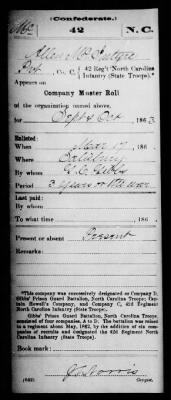 (Confederate.)
Mc 42 N.C.
Allen McIntyre
Pvt, Co. C, 42 Reg't North Carolina
Infantry (State Troops).
Appears on
Company Muster Roll
of the organization named above,
for Sept & Oct, 1863.
Enlisted:
When Mar 17, 186
Where Salisbury
By whom G. C. Gibbs
Period 3 Years or the war
Last paid:
By whom
To what time , 186 .
Present or absent Present
Remarks:
*This company was successively designated as Company D,
Gibbs' Prison Guard Battalion, North Carolina Troops; Cap-
tain Howell's Company, and Company C, 42d Regiment
North Carolina Infantry (State Troops).
Gibbs' Prison Guard Battalion, North Carolina Troops,
consisted of four companies, A to D. The battalion was raised to
a regiment about May, 1862, by the addition of six com-
panies or recruits and designated the 42d Regiment North
Carolina Infantry (State Troops).
Book mark:
(642) Copyist.